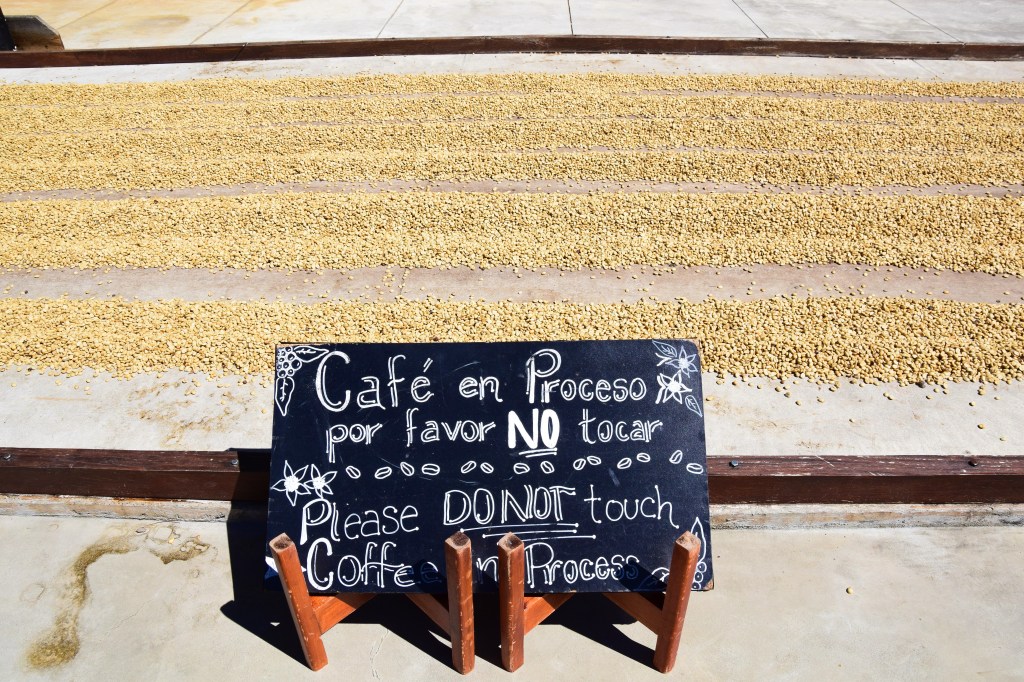 Café en Proceso
por favor NO tocar
Please DO NOT touch
Coffee in Process